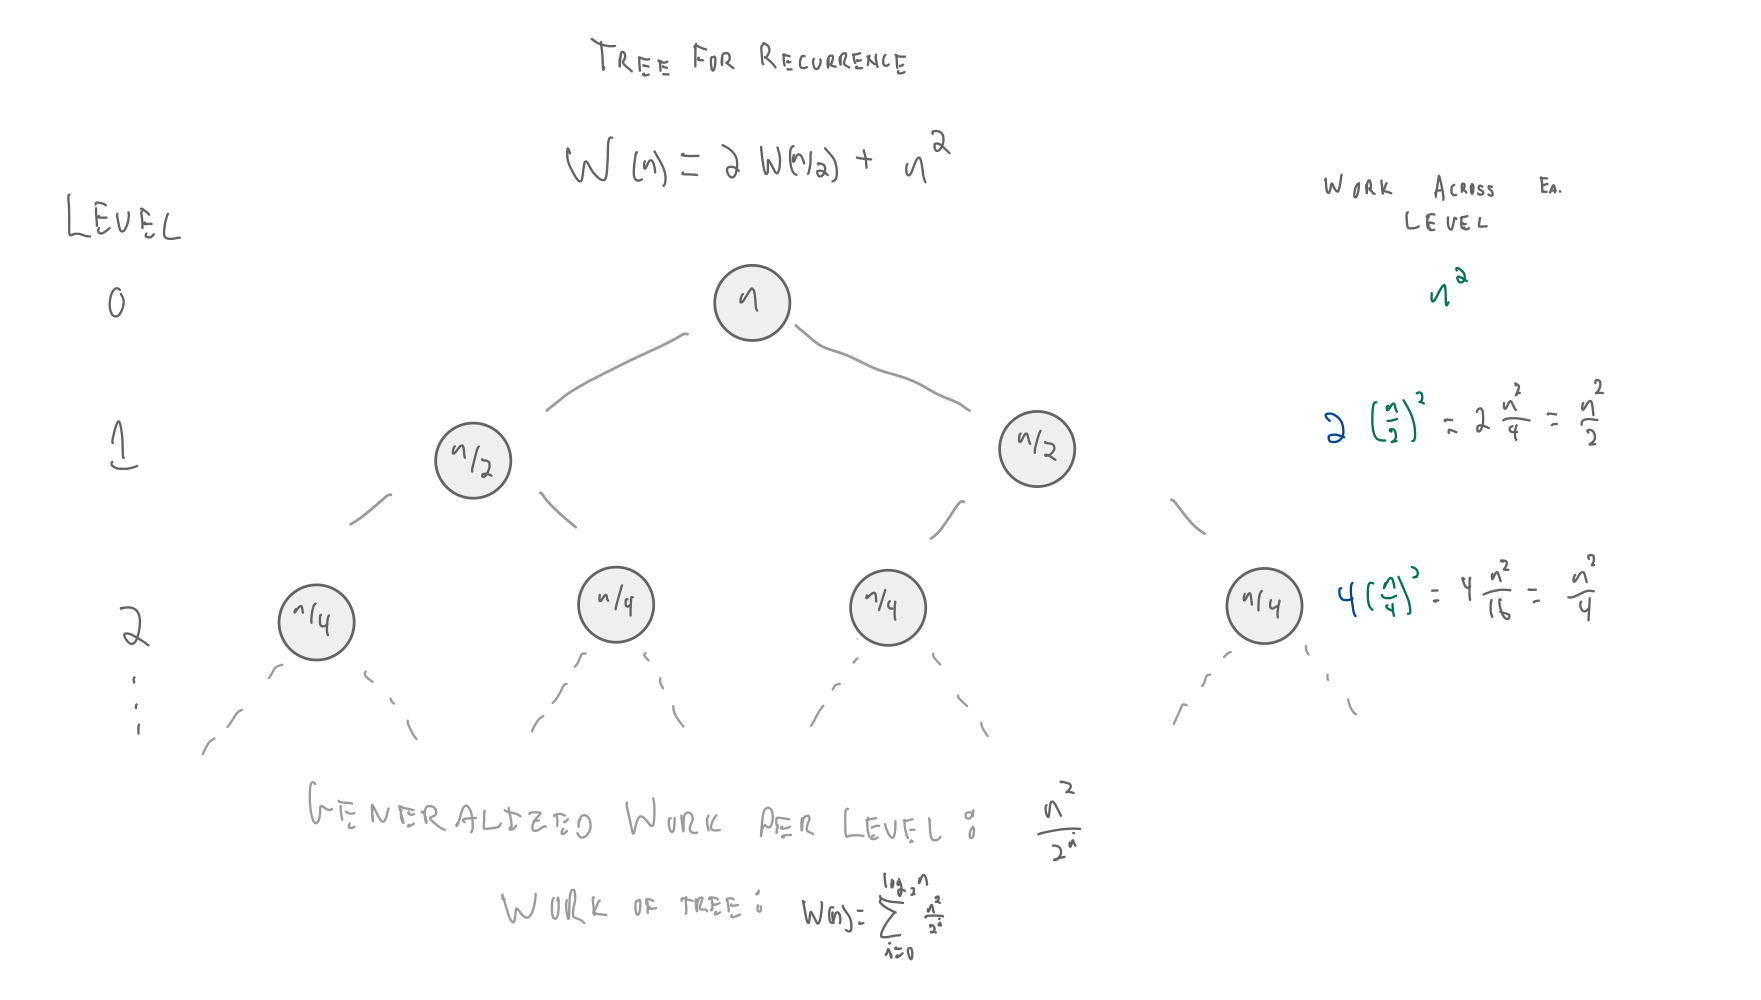 TREE FOR RECURRENCE
W(n) = 2 W(n/2) + n²
WORK ACROSS EA.
LEVEL
LEVEL
0
n
n²
1
n/2
n/2
2 (n/2)² = 2 n²/4 = n²/2
2
n/4
n/4
n/4
n/4
4 (n/4)² = 4 n²/16 = n²/4
⋮
GENERALIZED WORK PER LEVEL: n²/2ⁱ
WORK OF TREE: W(n) = ∑_{i=0}^{log₂n} n²/2ⁱ